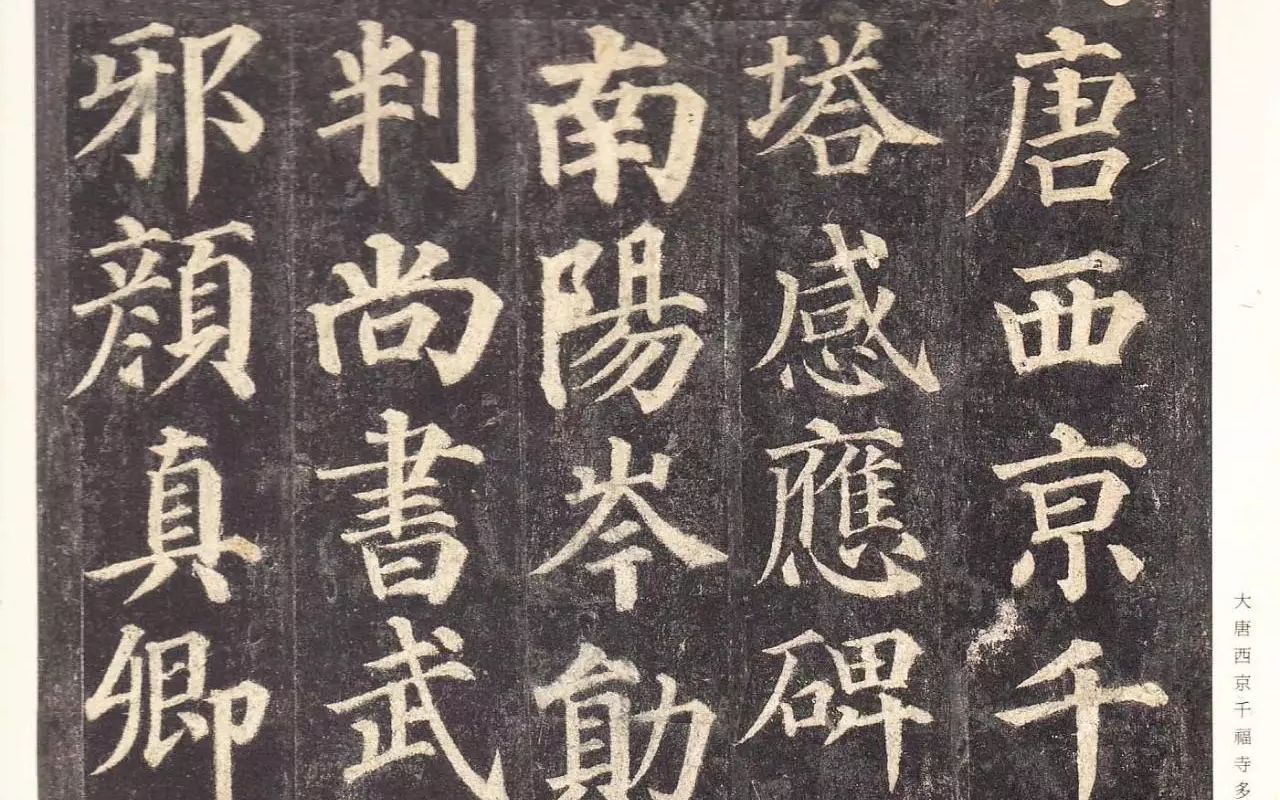 唐西京千
塔感應碑
南陽岑勛
判尚書武
邪顏真卿
大唐西京千福寺多